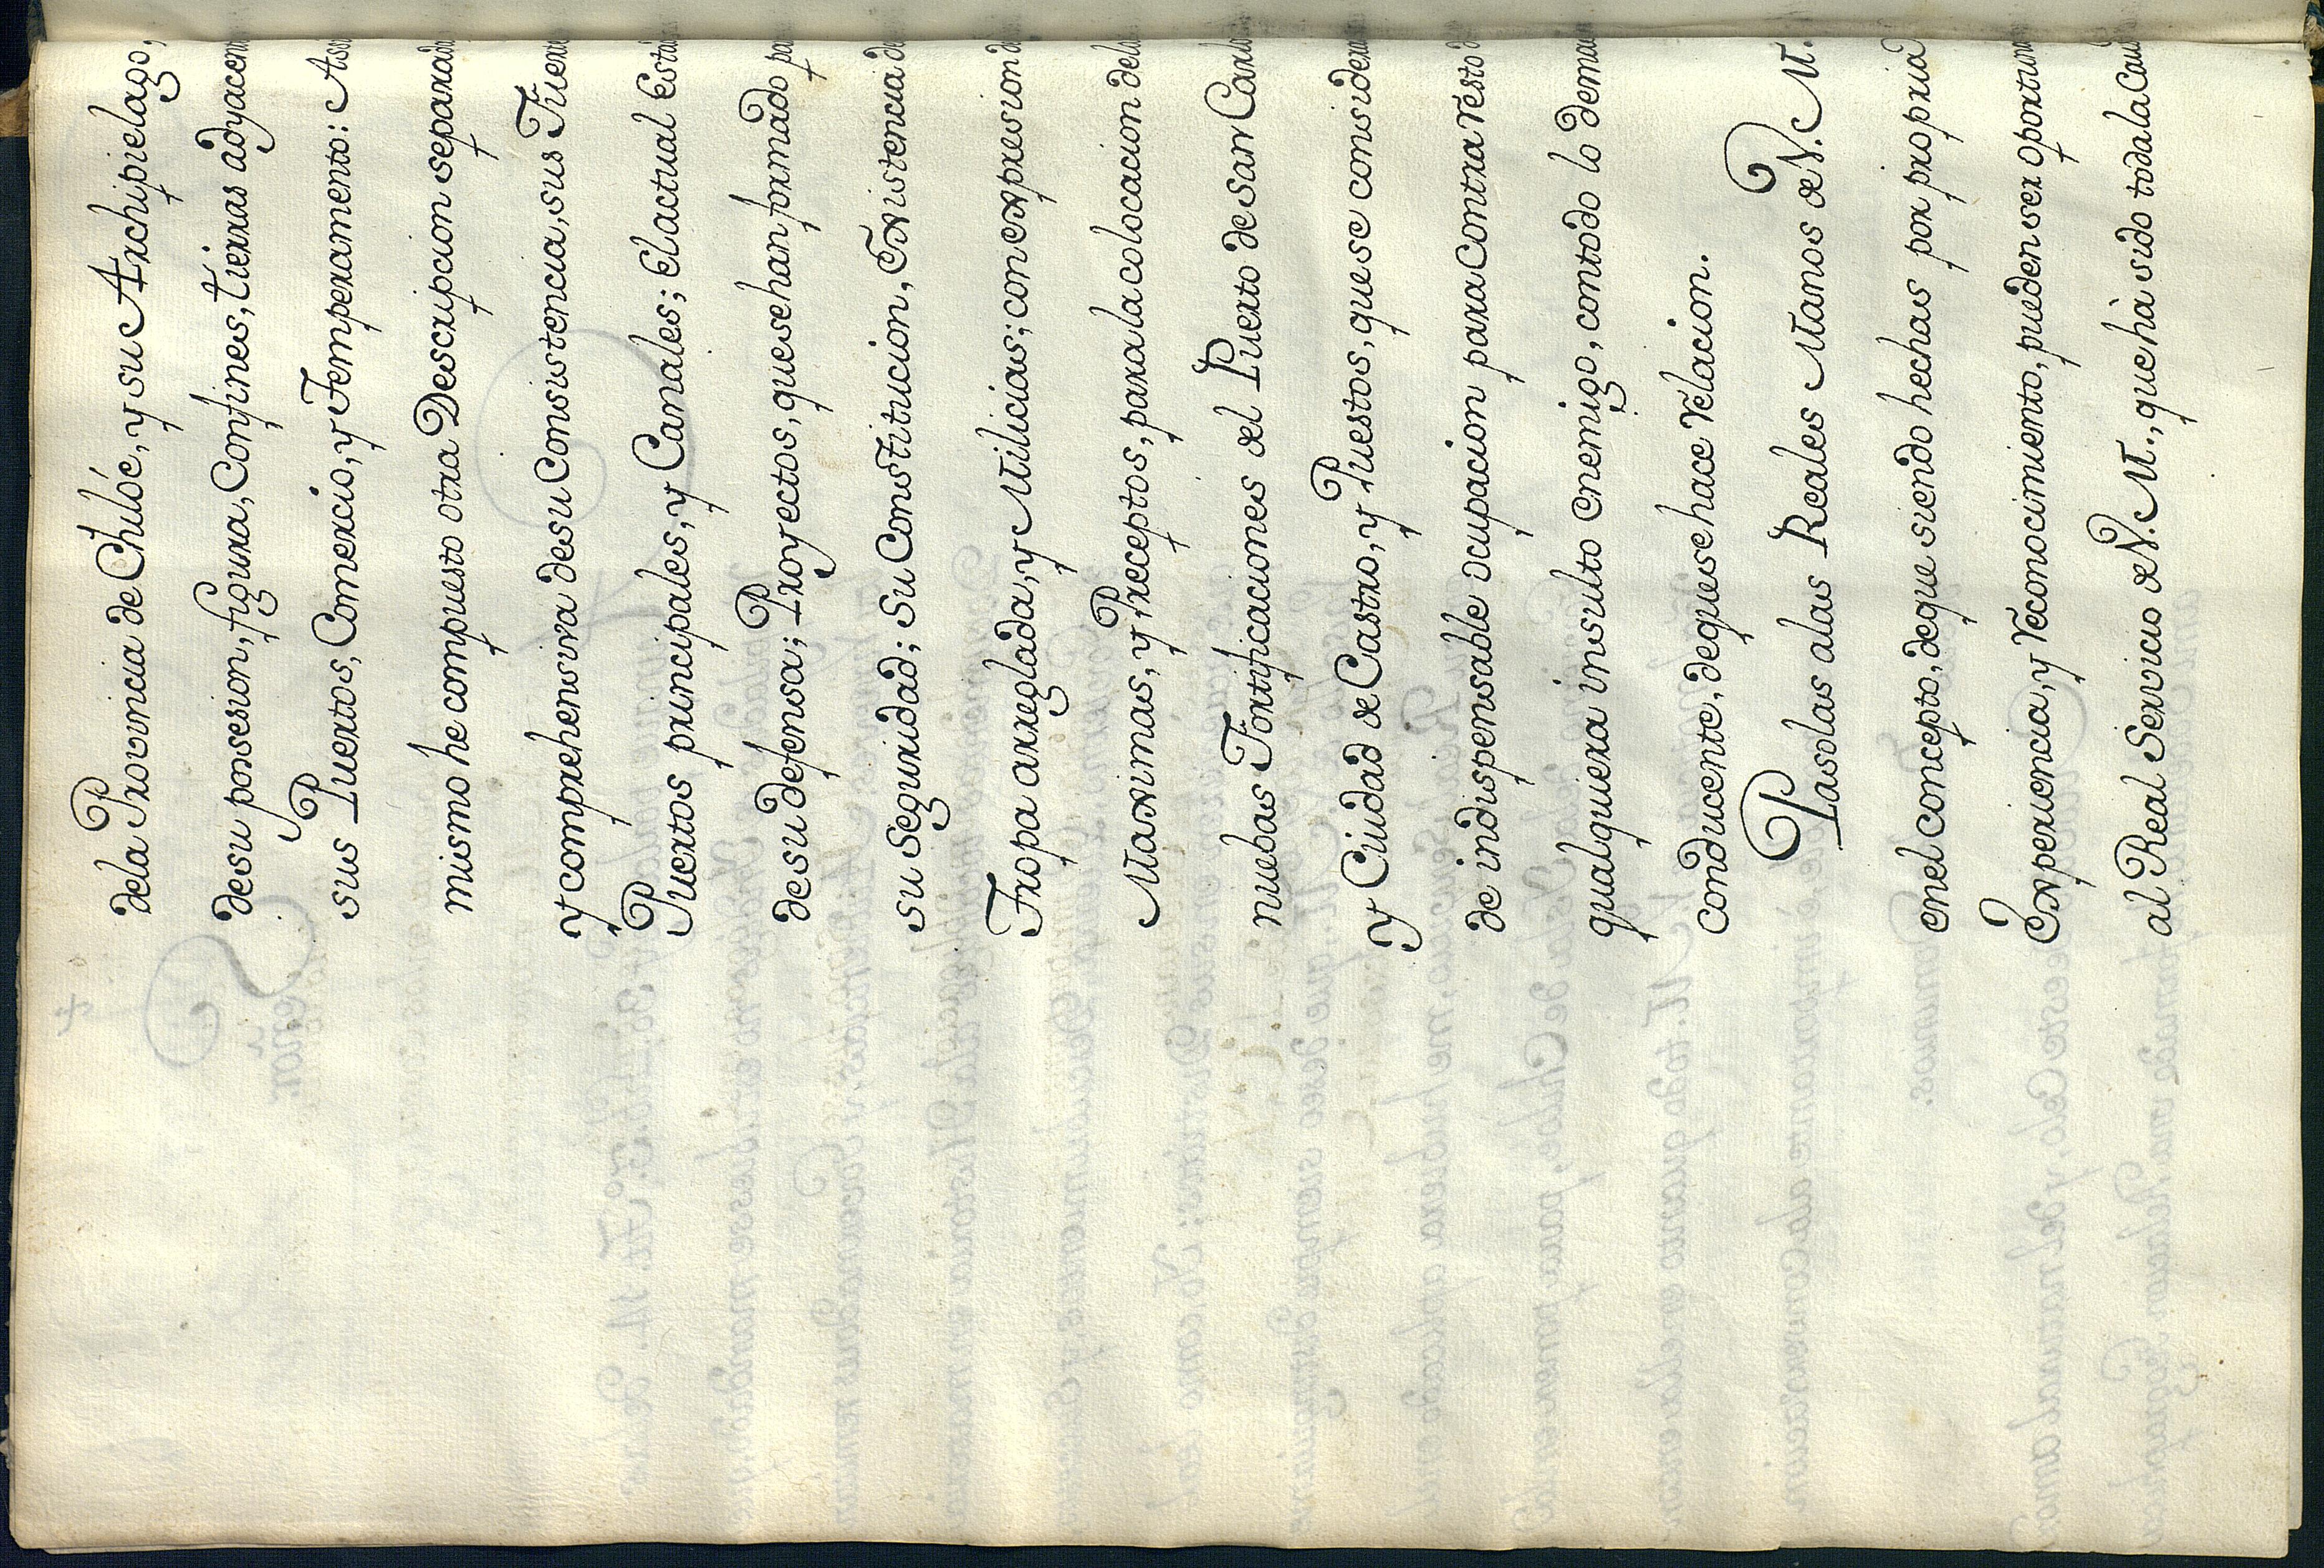 dela Provincia de Chilóe, y su Archipielago,
desu posesion, figura, Confines, tierras adyacen
sus Puertos, Comercio, y Temperamento: Ass
mismo he compuesto otra Descripcion separada
y comprehensiva desu Consistencia, sus Fuert
Puertos principales, y Canales; El actual Esta
de su defensa; Proyectos, que se han formado pa
su Seguridad; su Constitucion, Existencia de
Tropa arreglada, y Milicias; con expresion de
Maximas, y Preceptos, para la colocacion dela
nuebas Fortificaciones del Puerto de San Carlo
y Ciudad de Castro, y Puestos, que se consider
de indispensable ocupacion para Contra resto d
qualquiera insulto Enemigo, con todo lo demas
conducente, de que se hace relacion.
Pasolas alas Reales Manos de V. M.
en el concepto, de que siendo hechas por propria
Experiencia, y reconocimiento, pueden ser oportun
al Real Servicio de V. M., que hà sido toda la Cau